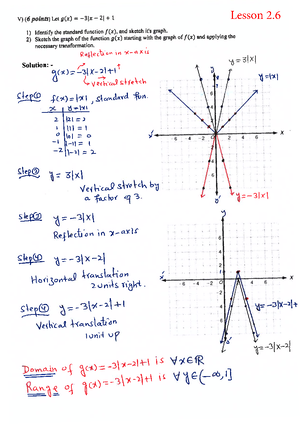 Lesson 2.6
V) (6 points) Let g(x) = -3|x - 2| + 1
1) Identify the standard function f(x), and sketch it's graph.
2) Sketch the graph of the function g(x) starting with the graph of f(x) and applying the
necessary transformation.
Reflection in x-axis
Solution: -
g(x) = -3|x-2|+1
vertical stretch
Step① f(x)=|x|, standard fun.
x y=|x|
2 |2|=2
1 |1|=1
0 |0|=0
-1 |-1|=1
-2 |-2|=2
y=3|x|
y=|x|
y=-3|x|
y = 3|x|
Vertical stretch by
a factor of 3.
y=-3|x|
Reflection in x-axis
y=-3|x-2|
Horizontal translation
2 units right.
y=-3|x-2|+1
Vertical translation
1 unit up
y=-3|x-2|+1
y=-3|x-2|
Domain of g(x)=-3|x-2|+1 is ∀x∈ℝ
Range of g(x)=-3|x-2|+1 is ∀y∈(-∞,1]